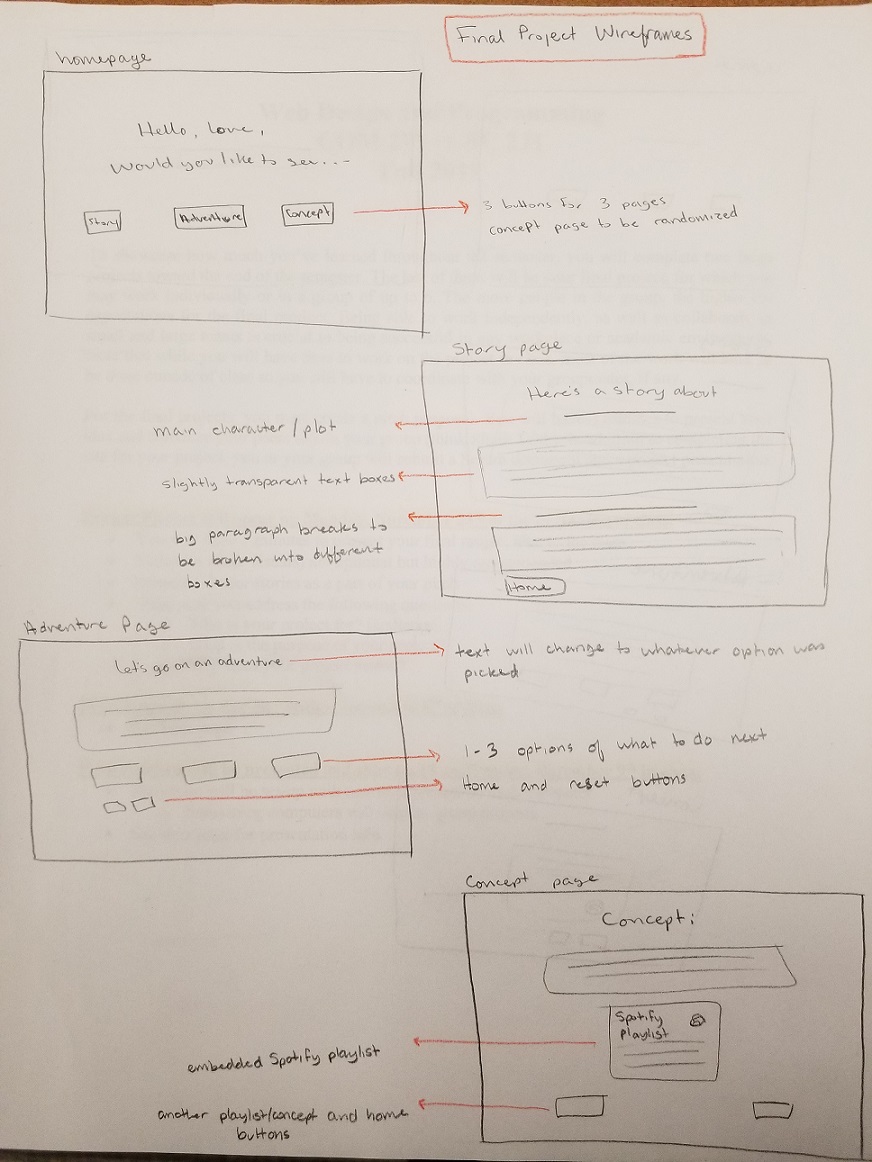 Final Project Wireframes
homepage
Hello, love,
would you like to see...
Story
Adventure
Concept
3 buttons for 3 pages
concept page to be randomized
Story page
Here's a story about
main character / plot
slightly transparent text boxes
big paragraph breaks to
be broken into different
boxes
Home
Adventure Page
Let's go on an adventure
text will change to whatever option was
picked
1-3 options of what to do next
Home and reset buttons
Concept page
Concept:
Spotify
playlist
embedded Spotify playlist
another playlist/concept and home
buttons